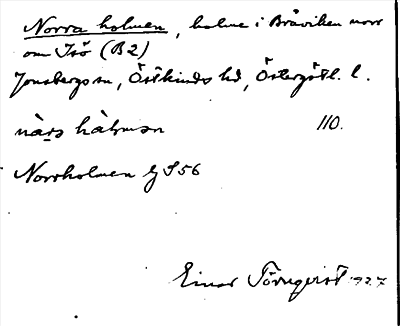 Norra holmen, holme i Bråviken norr
om Isö (B2)
Jonsbergs sn, Östkinds hd, Östergötl. l.
nàrs hàlmən 110.
Norrholmen Gj S56
Einar Törnqvist 1927